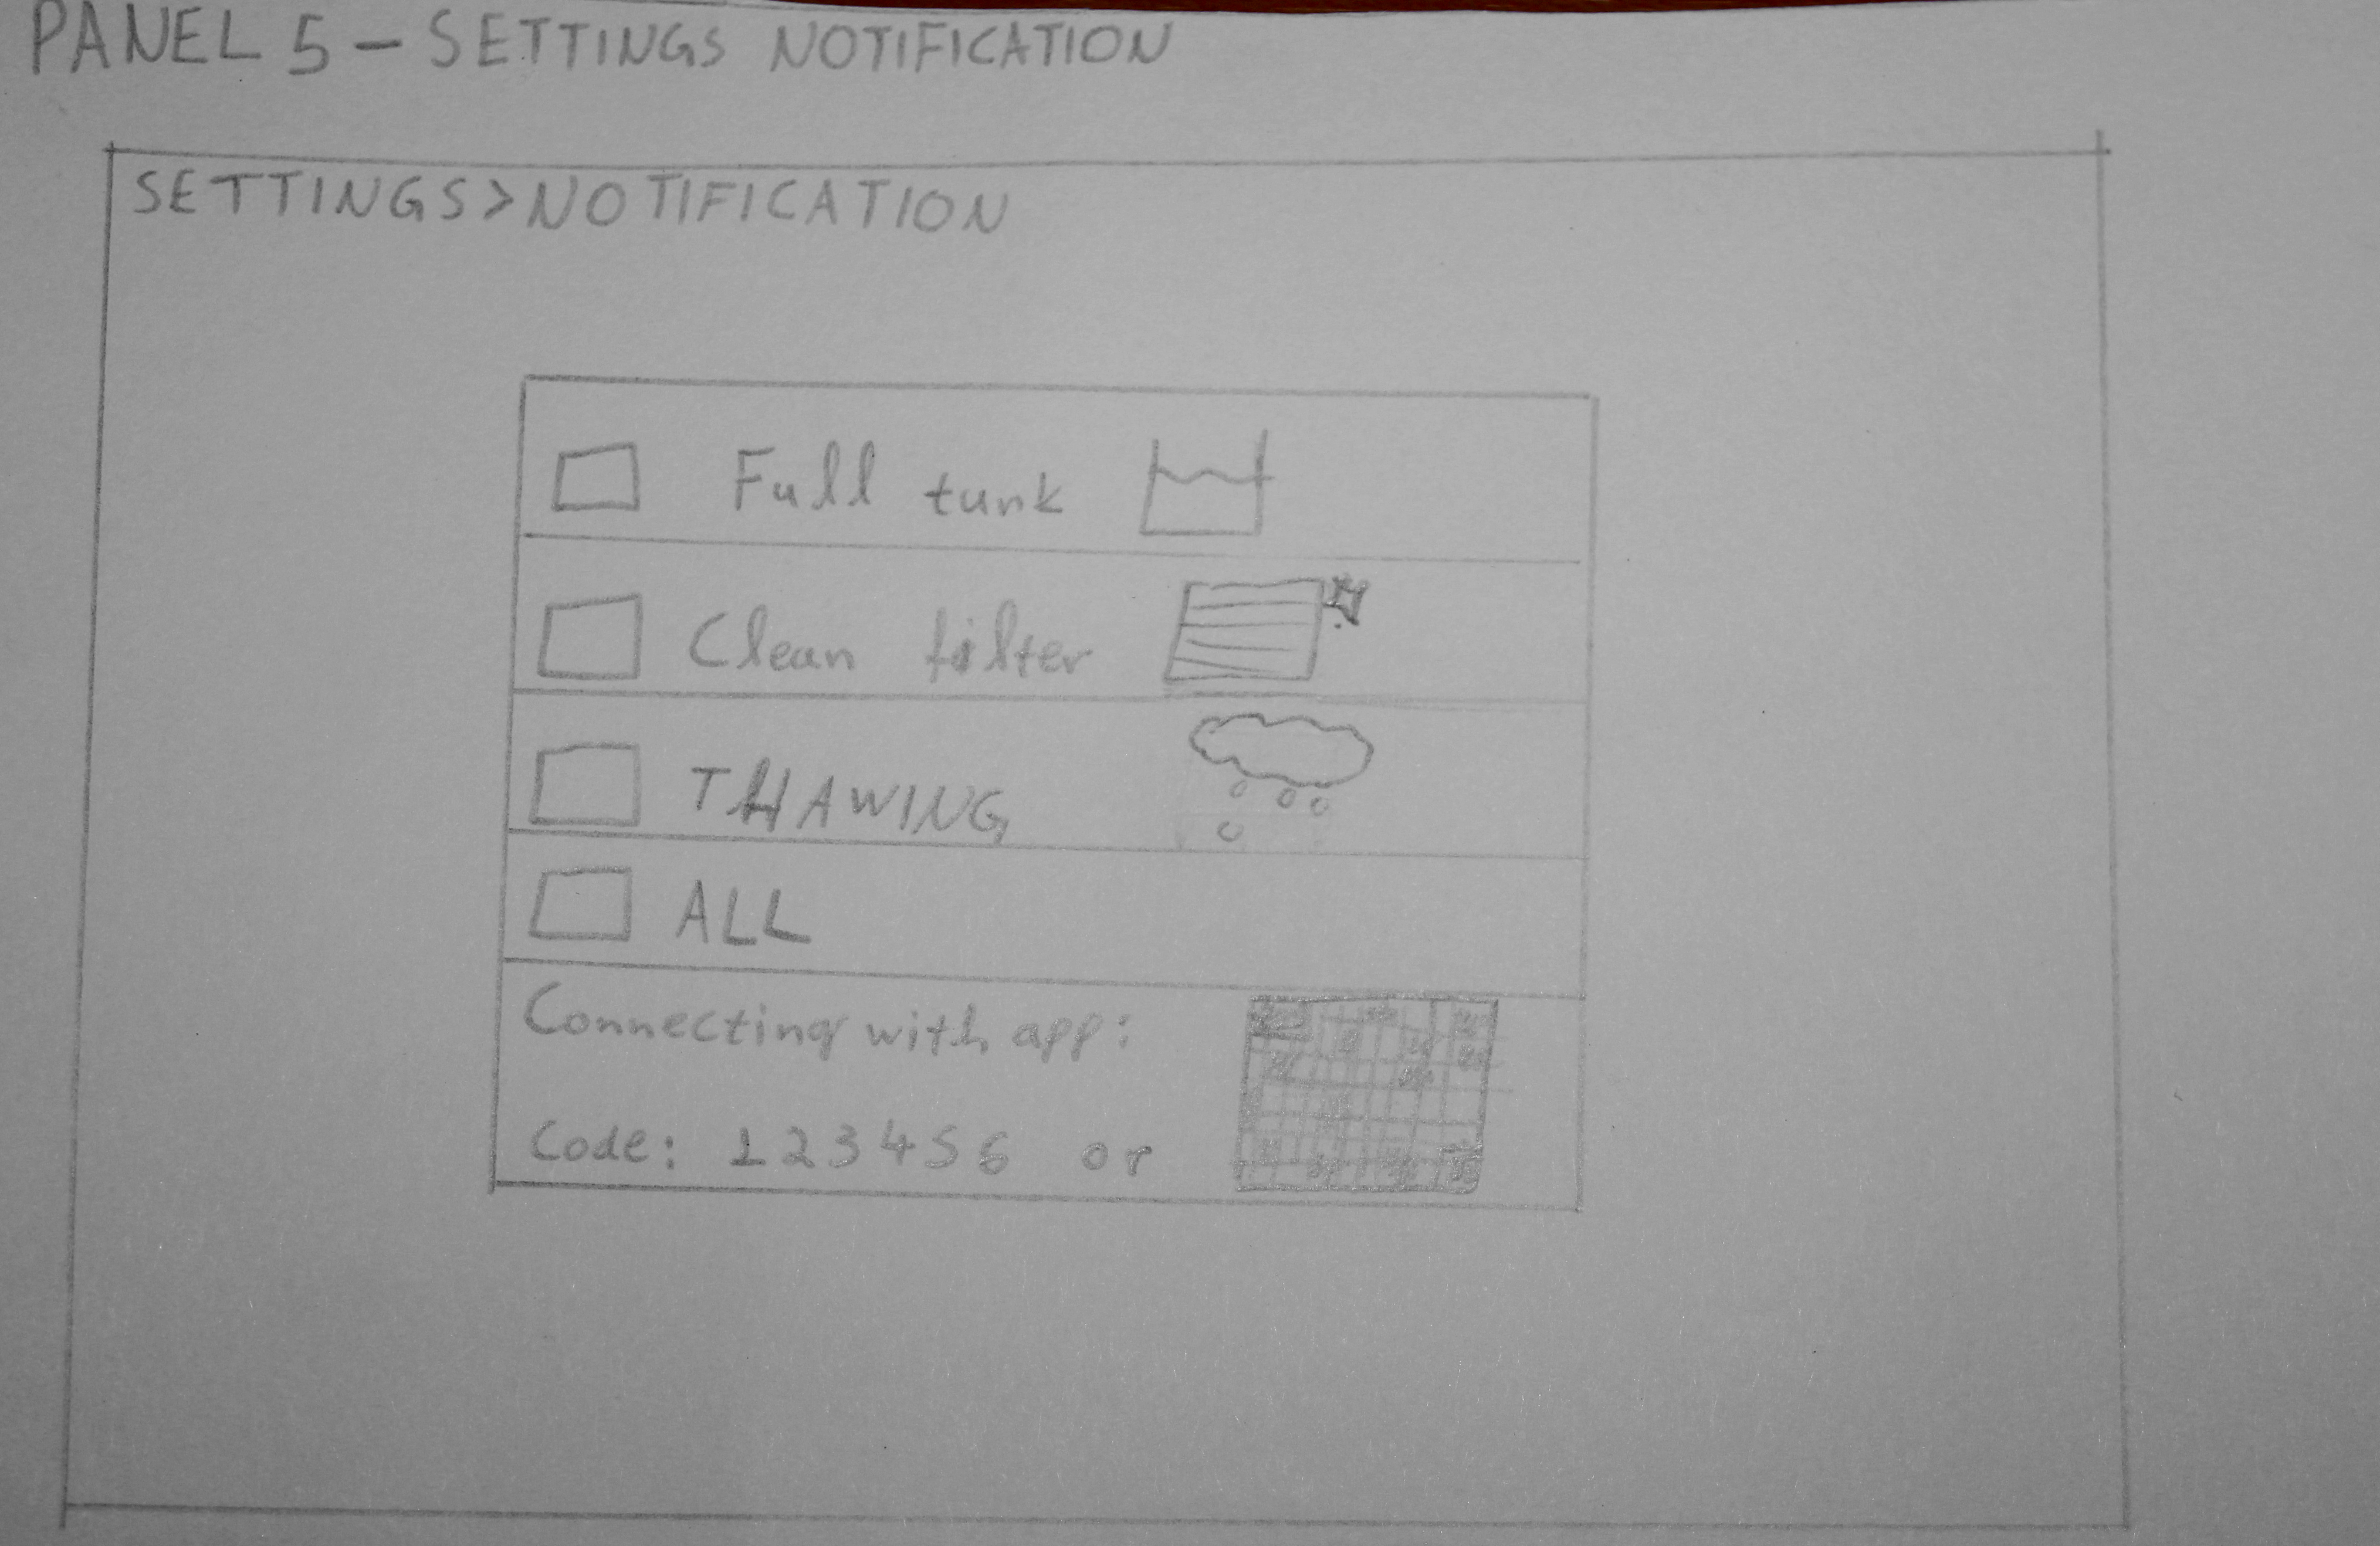 PANEL 5 - SETTINGS NOTIFICATION
SETTINGS>NOTIFICATION
Full tunk
Clean filter
THAWING
ALL
Connecting with app:
Code: 123456 or